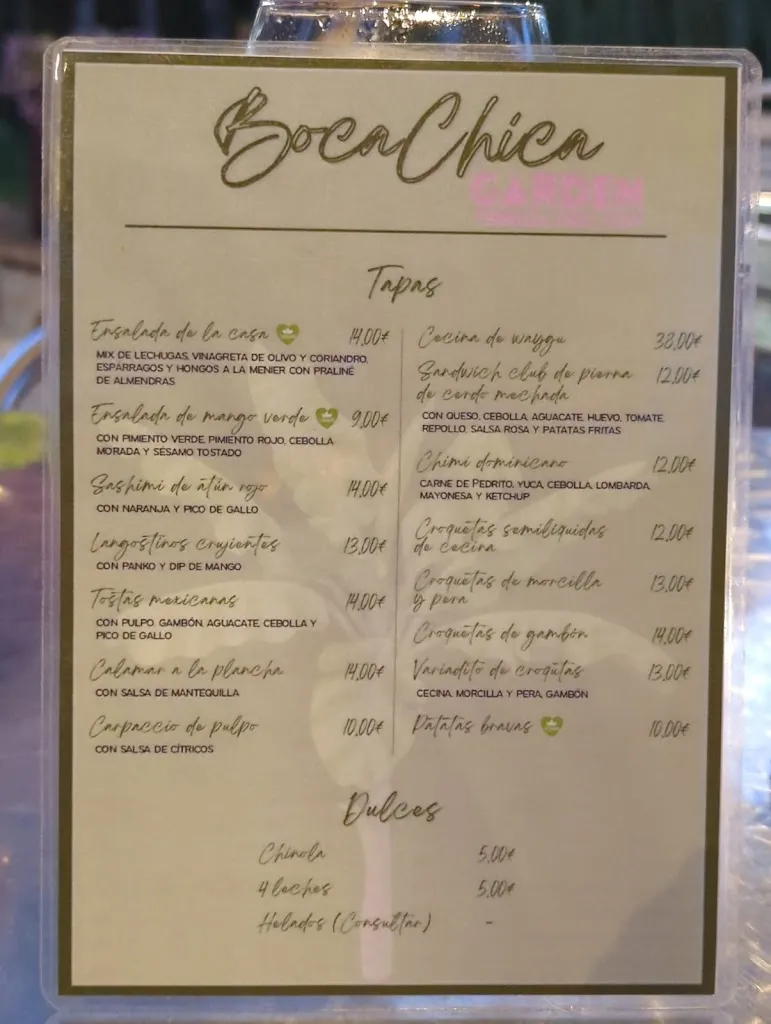 BocaChica
GARDEN
Tapas
Ensalada de la casa 14,00€
MIX DE LECHUGAS, VINAGRETA DE OLIVO Y CORIANDRO,
ESPÁRRAGOS Y HONGOS A LA MENIER CON PRALINÉ
DE ALMENDRAS
Ensalada de mango verde 9,00€
CON PIMIENTO VERDE, PIMIENTO ROJO, CEBOLLA
MORADA Y SÉSAMO TOSTADO
Sashimi de atún rojo 14,00€
CON NARANJA Y PICO DE GALLO
Langostinos crujientes 13,00€
CON PANKO Y DIP DE MANGO
Tostas mexicanas 14,00€
CON PULPO, GAMBÓN, AGUACATE, CEBOLLA Y
PICO DE GALLO
Calamar a la plancha 14,00€
CON SALSA DE MANTEQUILLA
Carpaccio de pulpo 10,00€
CON SALSA DE CÍTRICOS
Cecina de waygu 38,00€
Sandwich club de pierna 12,00€
de cerdo mechada
CON QUESO, CEBOLLA, AGUACATE, HUEVO, TOMATE,
REPOLLO, SALSA ROSA Y PATATAS FRITAS
Chimi dominicano 12,00€
CARNE DE PEDRITO, YUCA, CEBOLLA, LOMBARDA,
MAYONESA Y KETCHUP
Croquetas semilíquidas 12,00€
de cecina
Croquetas de morcilla 13,00€
y pera
Croquetas de gambón 14,00€
Variadito de croqutas 13,00€
CECINA, MORCILLA Y PERA, GAMBÓN
Patatas bravas 10,00€
Dulces
Chinola 5,00€
4 leches 5,00€
Helados (Consultar) -